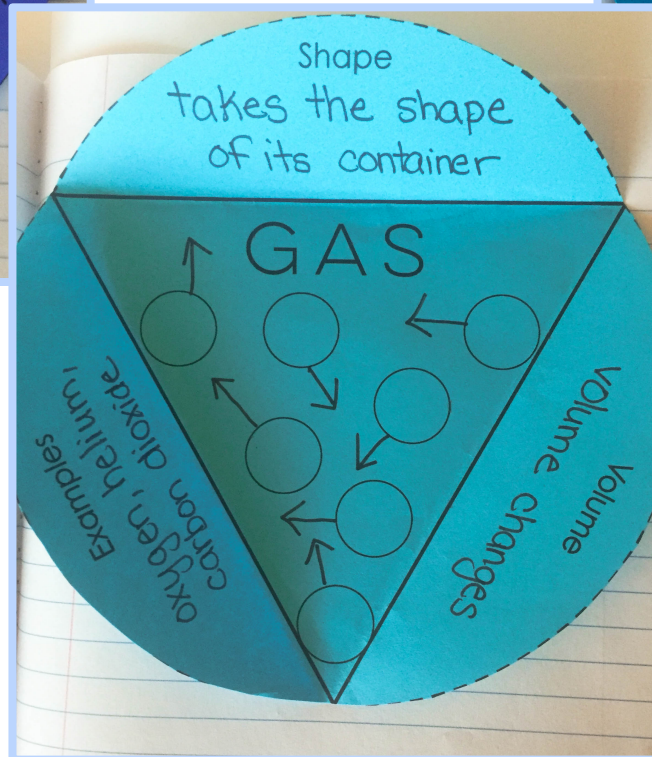 Shape
takes the shape
of its container
GAS
Volume
volume changes
Examples
oxygen, helium,
carbon dioxide